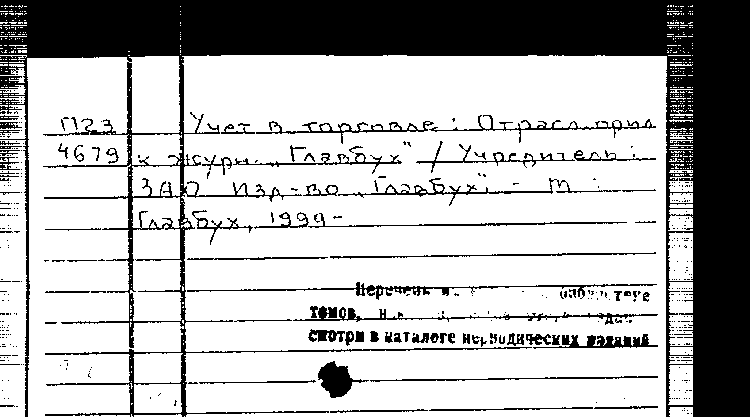 П23 Учет в торговле : Отрасл. прил
4679 к журн. „Главбух" / Учредитель :
ЗАО Изд-во „Главбух". - М :
Главбух, 1999 -
Перечень
томов,
смотри в каталоге периодических изданий